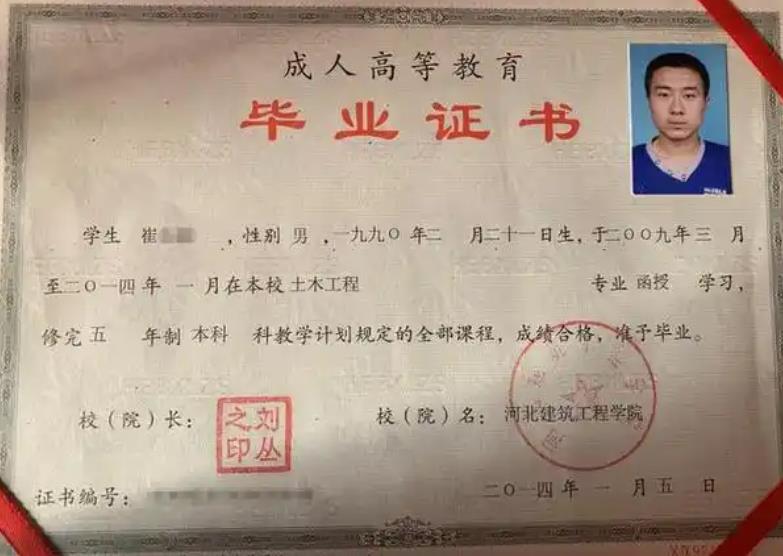 成人高等教育
毕业证书
学生 崔 ,性别 男 ,一九九〇年二 月二十一日生,于二〇〇九年三 月
至二〇一四年 一月在本校 土木工程 专业 函授 学习,
修完 五 年制 本科 科教学计划规定的全部课程,成绩合格,准予毕业。
校(院)长: 刘丛之印 校(院)名: 河北建筑工程学院
证书编号: 二〇一四年 一 月 五 日